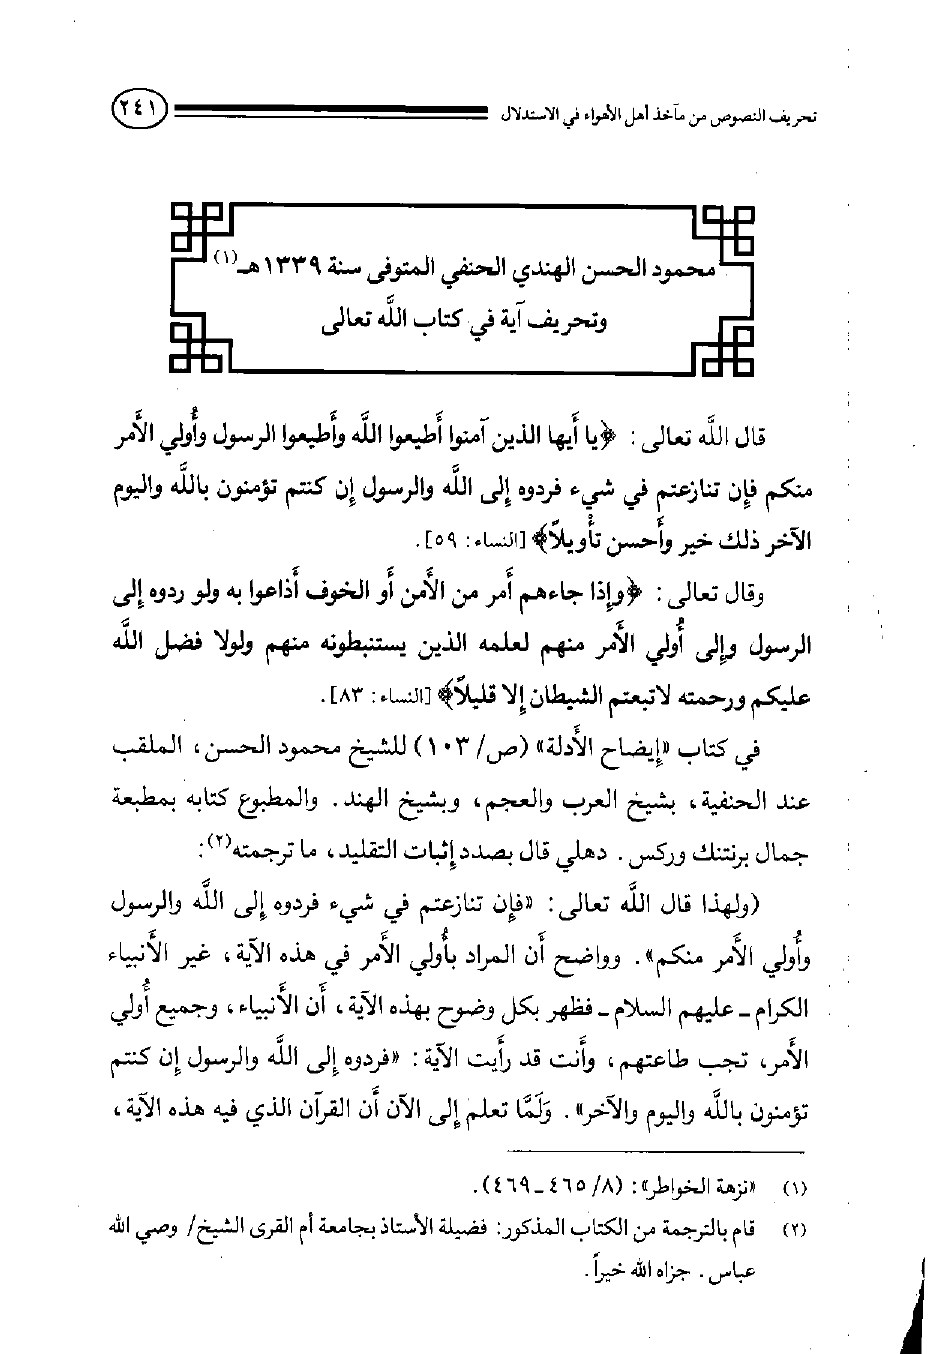 تحريف النصوص من مآخذ أهل الأهواء في الاستدلال ٢٤١
محمود الحسن الهندي الحنفي المتوفى سنة ١٣٣٩هـ(١)
وتحريف آية في كتاب اللَّه تعالى
قال اللَّه تعالى: ﴿يا أيها الذين آمنوا أطيعوا اللَّه وأطيعوا الرسول وأُولي الأمر
منكم فإن تنازعتم في شيء فردوه إلى اللَّه والرسول إن كنتم تؤمنون باللَّه واليوم
الآخر ذلك خير وأحسن تأويلاً﴾ [النساء: ٥٩].
وقال تعالى: ﴿وإذا جاءهم أمر من الأمن أو الخوف أذاعوا به ولو ردوه إلى
الرسول وإلى أُولي الأمر منهم لعلمه الذين يستنبطونه منهم ولولا فضل اللَّه
عليكم ورحمته لاتبعتم الشيطان إلا قليلاً﴾ [النساء: ٨٣].
في كتاب «إيضاح الأدلة» (ص/ ١٠٣) للشيخ محمود الحسن، الملقب
عند الحنفية، بشيخ العرب والعجم، وبشيخ الهند. والمطبوع كتابه بمطبعة
جمال برنتنك وركس. دهلي قال بصدد إثبات التقليد، ما ترجمته(٢):
(ولهذا قال اللَّه تعالى: «فإن تنازعتم في شيء فردوه إلى اللَّه والرسول
وأُولي الأمر منكم». وواضح أن المراد بأُولي الأمر في هذه الآية، غير الأنبياء
الكرام ـ عليهم السلام ـ فظهر بكل وضوح بهذه الآية، أن الأنبياء، وجميع أُولي
الأمر، تجب طاعتهم، وأنت قد رأيت الآية: «فردوه إلى اللَّه والرسول إن كنتم
تؤمنون باللَّه واليوم والآخر». وَلَمَّا تعلم إلى الآن أن القرآن الذي فيه هذه الآية،
(١) «نزهة الخواطر»: (٨/ ٤٦٥ ـ ٤٦٩).
(٢) قام بالترجمة من الكتاب المذكور: فضيلة الأستاذ بجامعة أم القرى الشيخ/ وصي الله
عباس. جزاه الله خيراً.